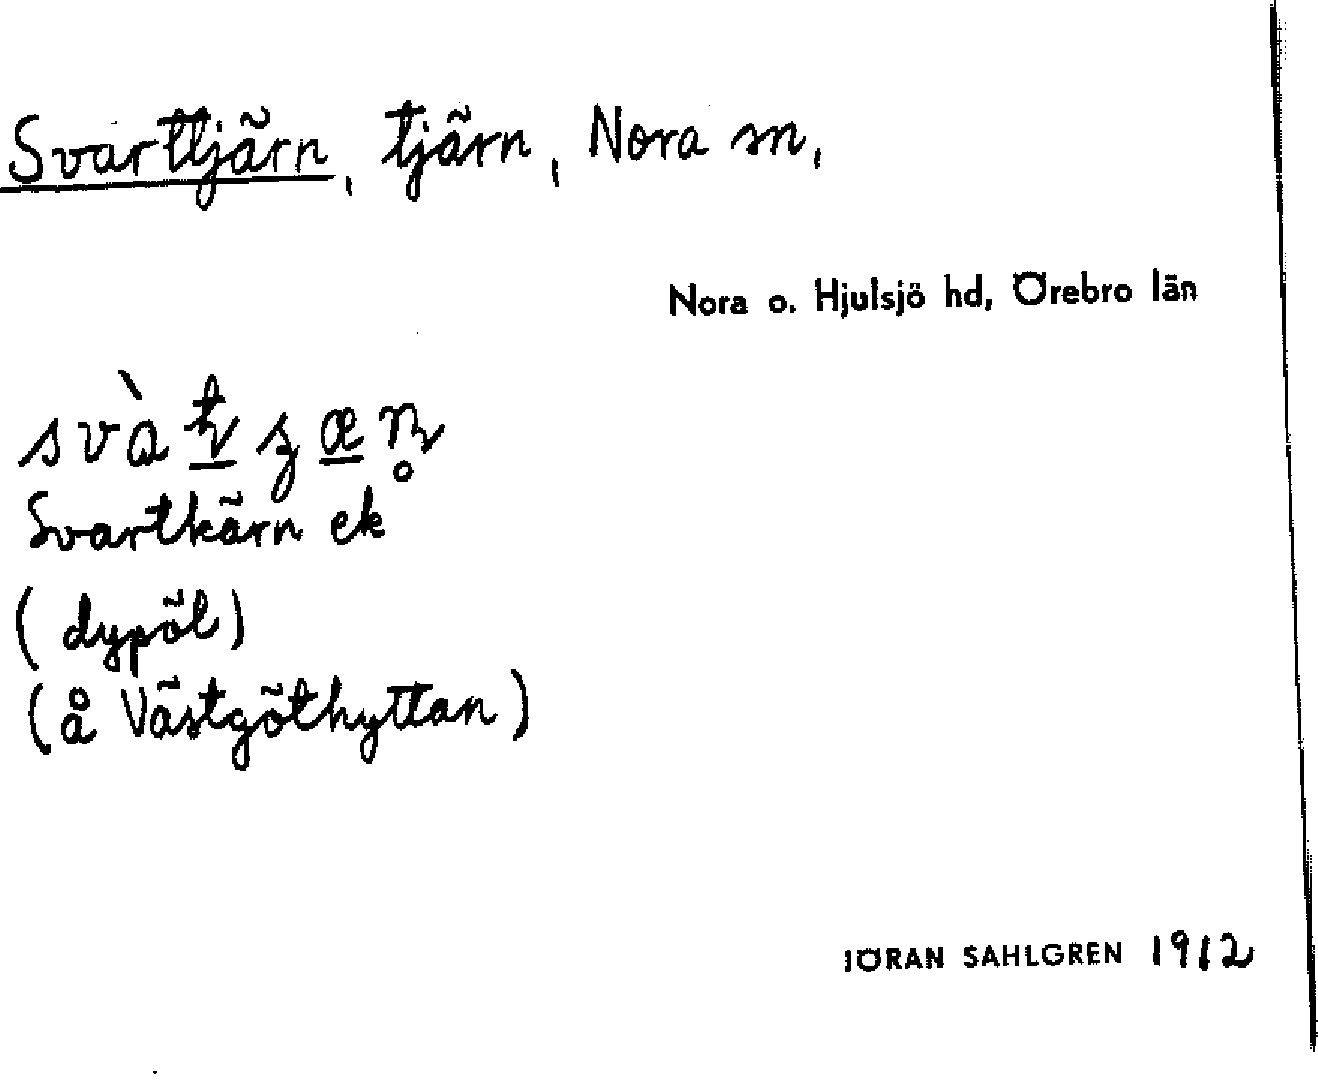 Svarttjärn, tjärn, Nora m,
Nora o. Hjulsjö hd, Örebro län
Svartkärn ek
(dypöl)
(å Västgöthyttan)
JÖRAN SAHLGREN 1912